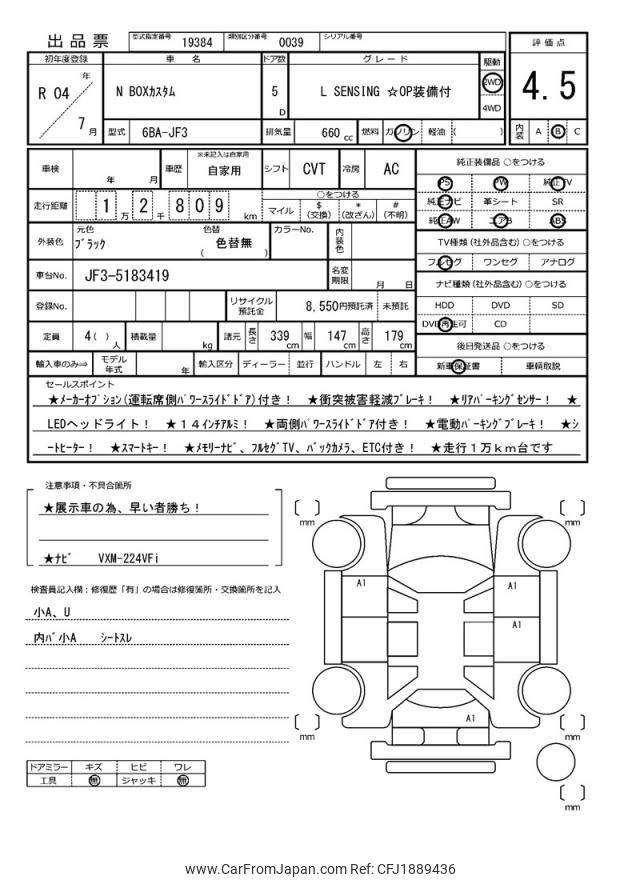 出品票 型式指定番号 19384 類別区分番号 0039 シリアル番号
評価点
4.5
内装 A B C
初年度登録 車名 ドア数 グレード 駆動
R 04 年 7 月
N BOXカスタム 5 D L SENSING ☆OP装備付 2WD 4WD
型式 6BA-JF3 排気量 660 cc 燃料 ガソリン 軽油 ( )
車検 年 月 車歴 ※未記入は自家用 自家用 シフト CVT 冷房 AC
走行距離 1 万 2 千 8 0 9 km
○をつける
マイル $ (交換) * (改ざん) # (不明)
外装色 元色 ブラック 色替 ( 色替無 ) カラーNo. 内装色
車台No. JF3-5183419 名変期限 月 日
登録No. リサイクル預託金 8,550円預託済 未預託
定員 4 ( ) 人 積載量 kg 諸元 長さ 339 cm 幅 147 cm 高さ 179 cm
輸入車のみ⇒ モデル年式 年 輸入区分 ディーラー 並行 ハンドル 左 右
純正装備品 ○をつける
PS PW 純正TV
純正ナビ 革シート SR
純正AW エアB ABS
TV種類 (社外品含む) ○をつける
フルセグ ワンセグ アナログ
ナビ種類 (社外品含む) ○をつける
HDD DVD SD
DVD再生可 CD
後日発送品 ○をつける
新車保証書 車輌取説
セールスポイント
★メーカーオプション(運転席側パワースライドドア)付き! ★衝突被害軽減ブレーキ! ★リアパーキングセンサー! ★
LEDヘッドライト! ★14インチアルミ! ★両側パワースライドドア付き! ★電動パーキングブレーキ! ★シ
ートヒーター! ★スマートキー! ★メモリーナビ、フルセグTV、バックカメラ、ETC付き! ★走行1万km台です
注意事項・不具合箇所
★展示車の為、早い者勝ち!
★ナビ VXM-224VFi
検査員記入欄:修復歴「有」の場合は修復箇所・交換箇所を記入
小A、U
内バ小A シートスレ
ドアミラー キズ ヒビ ワレ
工具 無 ジャッキ 無
mm
mm
A1
A1
A1
A1
mm
mm
mm
www.CarFromJapan.com Ref: CFJ1889436